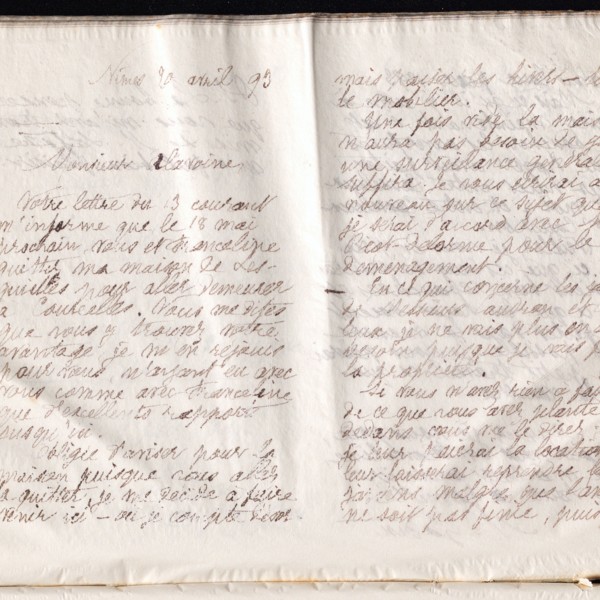 Nimes 20 avril 93
Monsieur Alavoine,
Votre lettre du 13 courant
m'informe que le 18 mai
prochain vous et Franceline
quitter ma maison de Les-
quilles pour aler demeurer
a Courcelles. Vous me dites
que vous y trouver votre
avantage, je m'en rejouis
pour vous n'ayant eu avec
vous comme avec Franceline
que d'excellents rapports
jusqu'ici.
Obligée d'aviser pour la
maison puisque vous aller
la quitter, je me decide a faire
venir ici – ou je compte
mais passer les hivers –
le mobilier.
Une fois vide la mais
n'aura pas besoin de
une surveillance general
suffira. je vous ecrirai a
nouveau sur ce sujet qu
je serai d'accord avec
pour le
demenagement.
En ce qui concerne les ja
de Messieurs
je ne vais plus en a
besoin puisque je vais
la propriete.
Si vous n'aver rien a fai
de ce que vous aver planté
dedans vous me le direr
je leur
leur laisserai reprendre le
jardins malgré que l'an
ne soit pas finie, puis